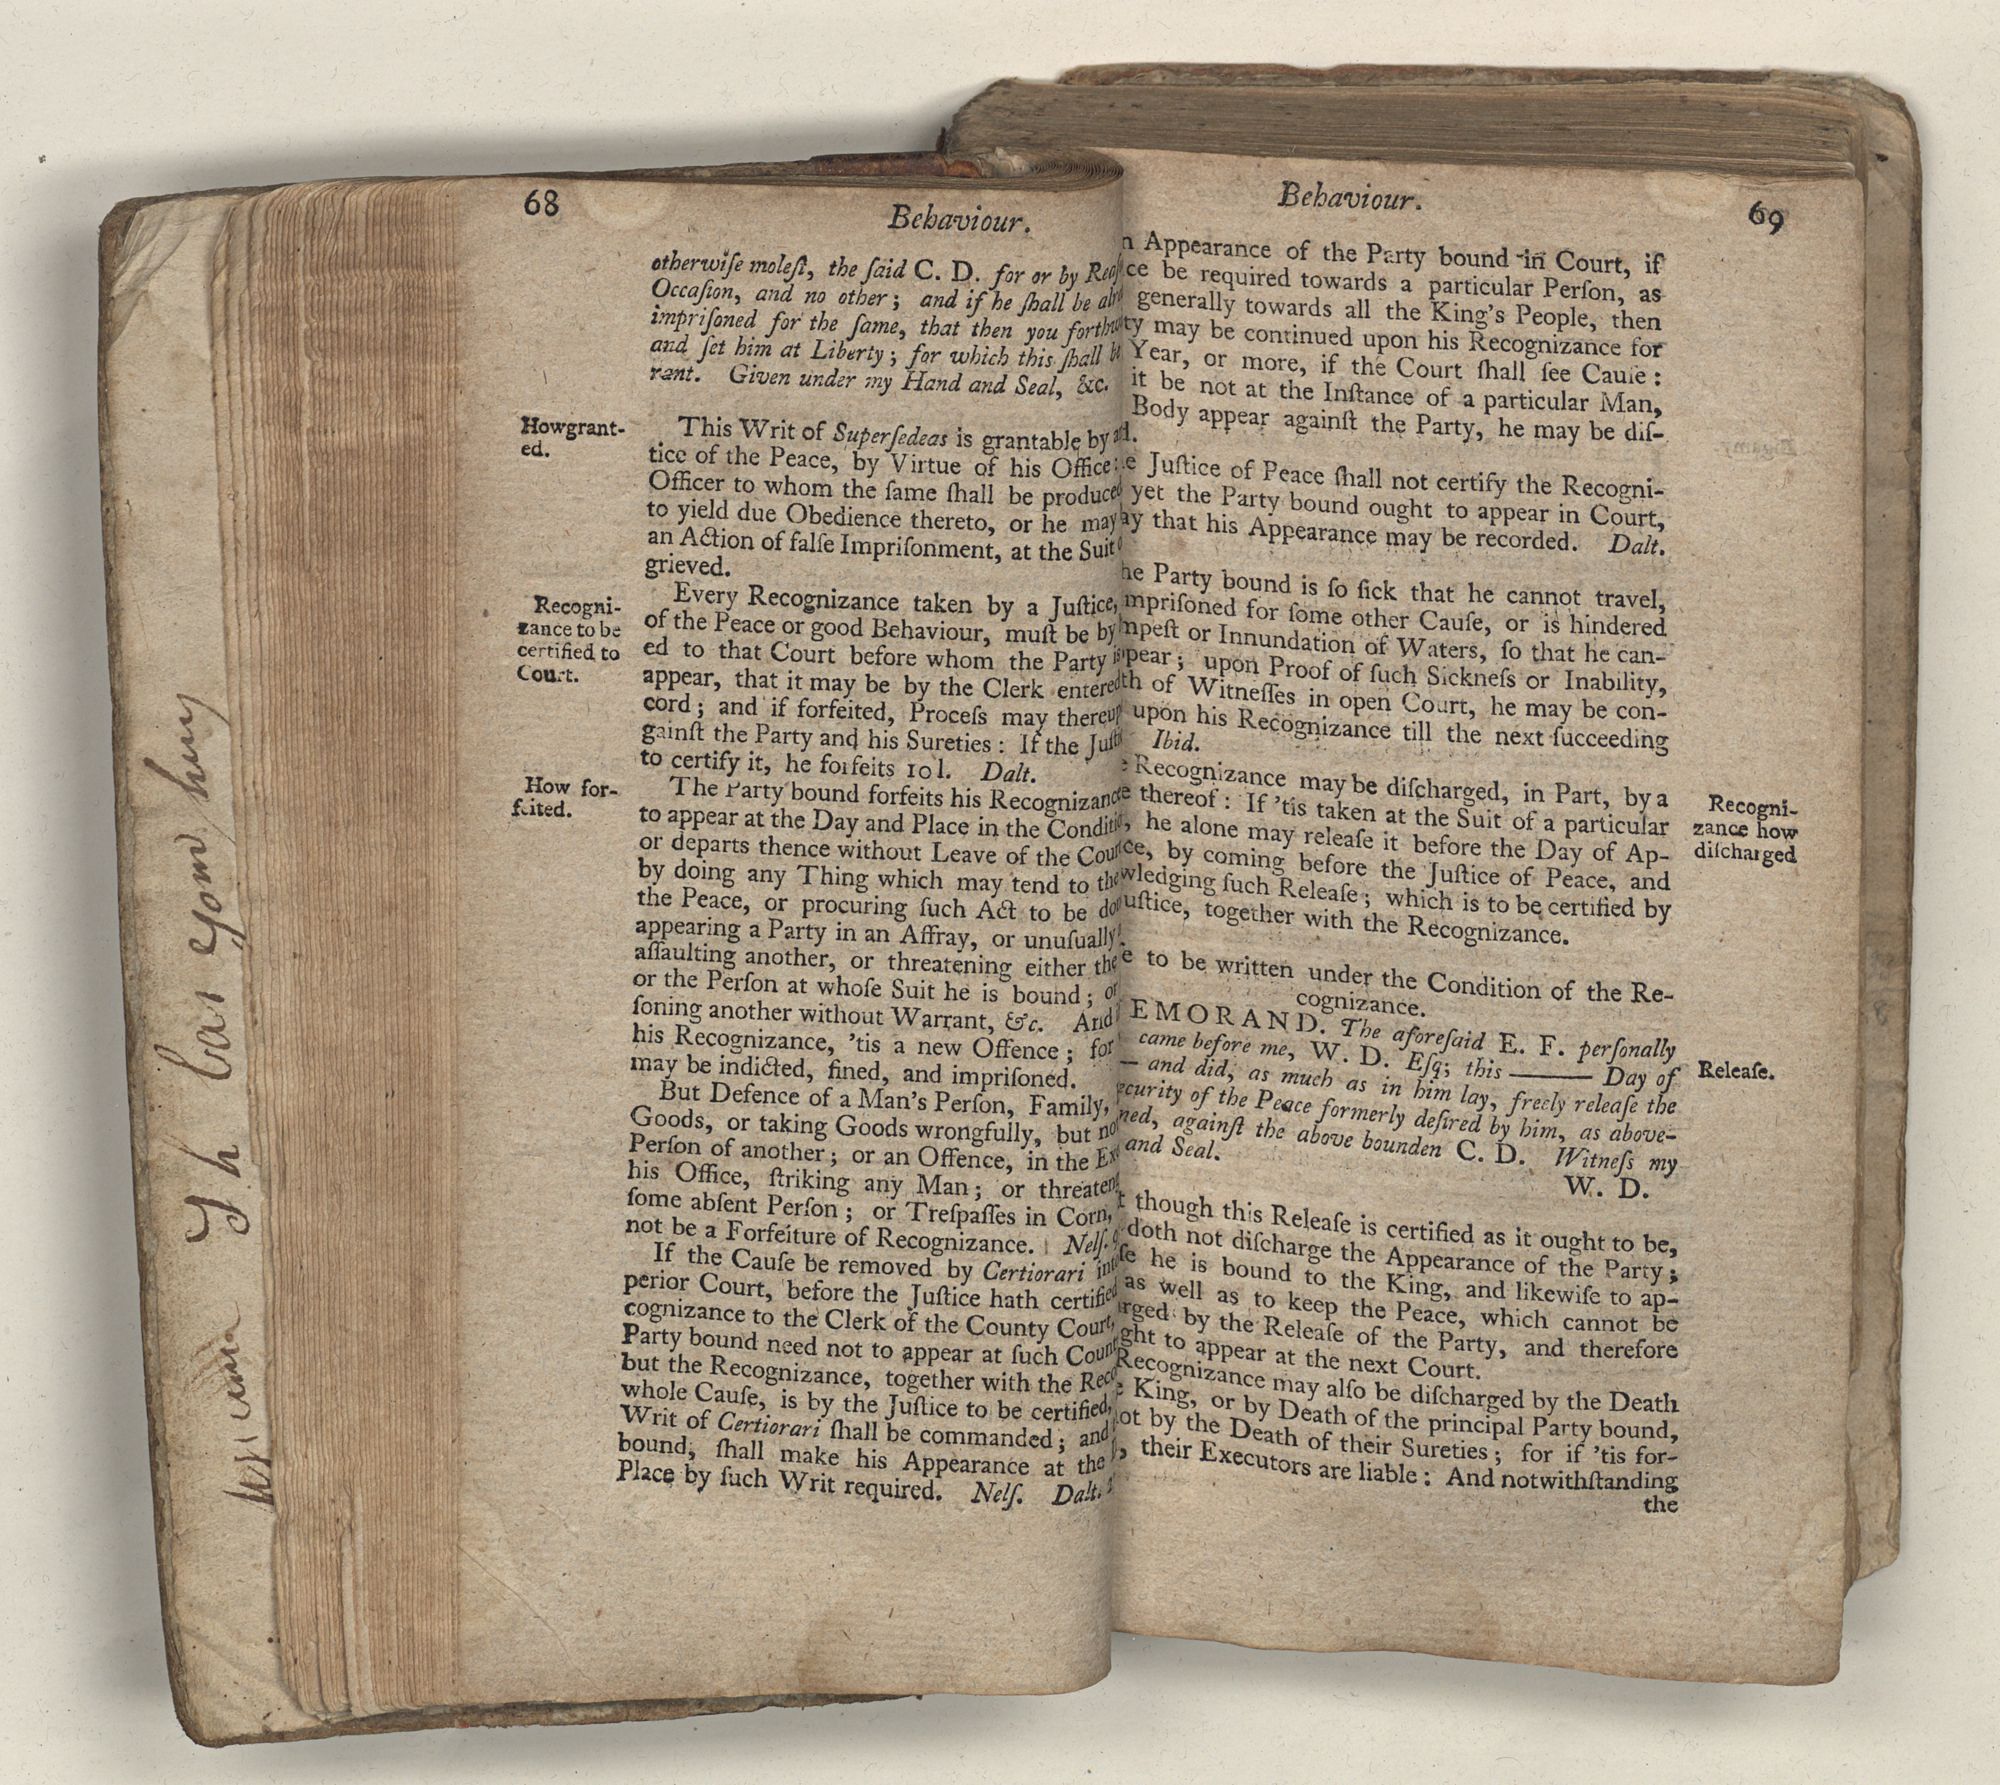 68
Behaviour.
otherwiſe moleſt, the ſaid C. D. for or by
Occaſion, and no other; and if he ſhall be
impriſoned for the ſame, that then you
and ſet him at Liberty; for which this ſhall
rant. Given under my Hand and Seal, &c.
Howgrant-
ed.
This Writ of Superſedeas is grantable by
tice of the Peace, by Virtue of his Office:
Officer to whom the ſame ſhall be produced
to yield due Obedience thereto, or he may
an Action of falſe Impriſonment, at the Suit
grieved.
Recogni-
zance to be
certified to
Court.
Every Recognizance taken by a Juſtice,
of the Peace or good Behaviour, muſt be by
ed to that Court before whom the Party
appear, that it may be by the Clerk entered
cord; and if forfeited, Proceſs may
gainſt the Party and his Sureties: If the
to certify it, he forfeits 10 l. Dalt.
How for-
feited.
The Party bound forfeits his Recognizance
to appear at the Day and Place in the
or departs thence without Leave of the
by doing any Thing which may tend to the
the Peace, or procuring ſuch Act to be
appearing a Party in an Affray, or unuſually
aſſaulting another, or threatening either the
or the Perſon at whoſe Suit he is bound; or
ſoning another without Warrant, &c. And
his Recognizance, 'tis a new Offence; for
may be indicted, fined, and impriſoned.
But Defence of a Man's Perſon, Family,
Goods, or taking Goods wrongfully, but not
Perſon of another; or an Offence, in the
his Office, ſtriking any Man; or
ſome abſent Perſon; or Treſpaſſes in Corn,
not be a Forfeiture of Recognizance. Nelſ.
If the Cauſe be removed by Certiorari
perior Court, before the Juſtice hath certified
cognizance to the Clerk of the County Court,
Party bound need not to appear at ſuch
but the Recognizance, together with the
whole Cauſe, is by the Juſtice to be certified,
Writ of Certiorari ſhall be commanded; and
bound, ſhall make his Appearance at the
Place by ſuch Writ required. Nelſ. Dalt.
Behaviour.
69
Appearance of the Party bound in Court, if
be required towards a particular Perſon, as
generally towards all the King's People, then
may be continued upon his Recognizance for
Year, or more, if the Court ſhall ſee Cauſe:
it be not at the Inſtance of a particular Man,
Body appear againſt the Party, he may be diſ-
Juſtice of Peace ſhall not certify the Recogni-
yet the Party bound ought to appear in Court,
that his Appearance may be recorded. Dalt.
Party bound is ſo ſick that he cannot travel,
mpriſoned for ſome other Cauſe, or is hindered
mpeſt or Innundation of Waters, ſo that he can-
pear; upon Proof of ſuch Sickneſs or Inability,
of Witneſſes in open Court, he may be con-
upon his Recognizance till the next ſucceeding
Ibid.
Recognizance may be diſcharged, in Part, by a
thereof: If 'tis taken at the Suit of a particular
he alone may releaſe it before the Day of Ap-
ce, by coming before the Juſtice of Peace, and
wledging ſuch Releaſe; which is to be certified by
uſtice, together with the Recognizance.
Recogni-
zance how
diſcharged
to be written under the Condition of the Re-
cognizance.
EMORAND. The aforeſaid E. F. perſonally
came before me, W. D. Eſq; this ——— Day of
— and did, as much as in him lay, freely releaſe the
ecurity of the Peace formerly deſired by him, as above-
ned, againſt the above bounden C. D. Witneſs my
and Seal.
W. D.
Releaſe.
though this Releaſe is certified as it ought to be,
doth not diſcharge the Appearance of the Party;
he is bound to the King, and likewiſe to ap-
as well as to keep the Peace, which cannot be
rged by the Releaſe of the Party, and therefore
ght to appear at the next Court.
Recognizance may alſo be diſcharged by the Death
King, or by Death of the principal Party bound,
by the Death of their Sureties; for if 'tis for-
their Executors are liable: And notwithſtanding
the